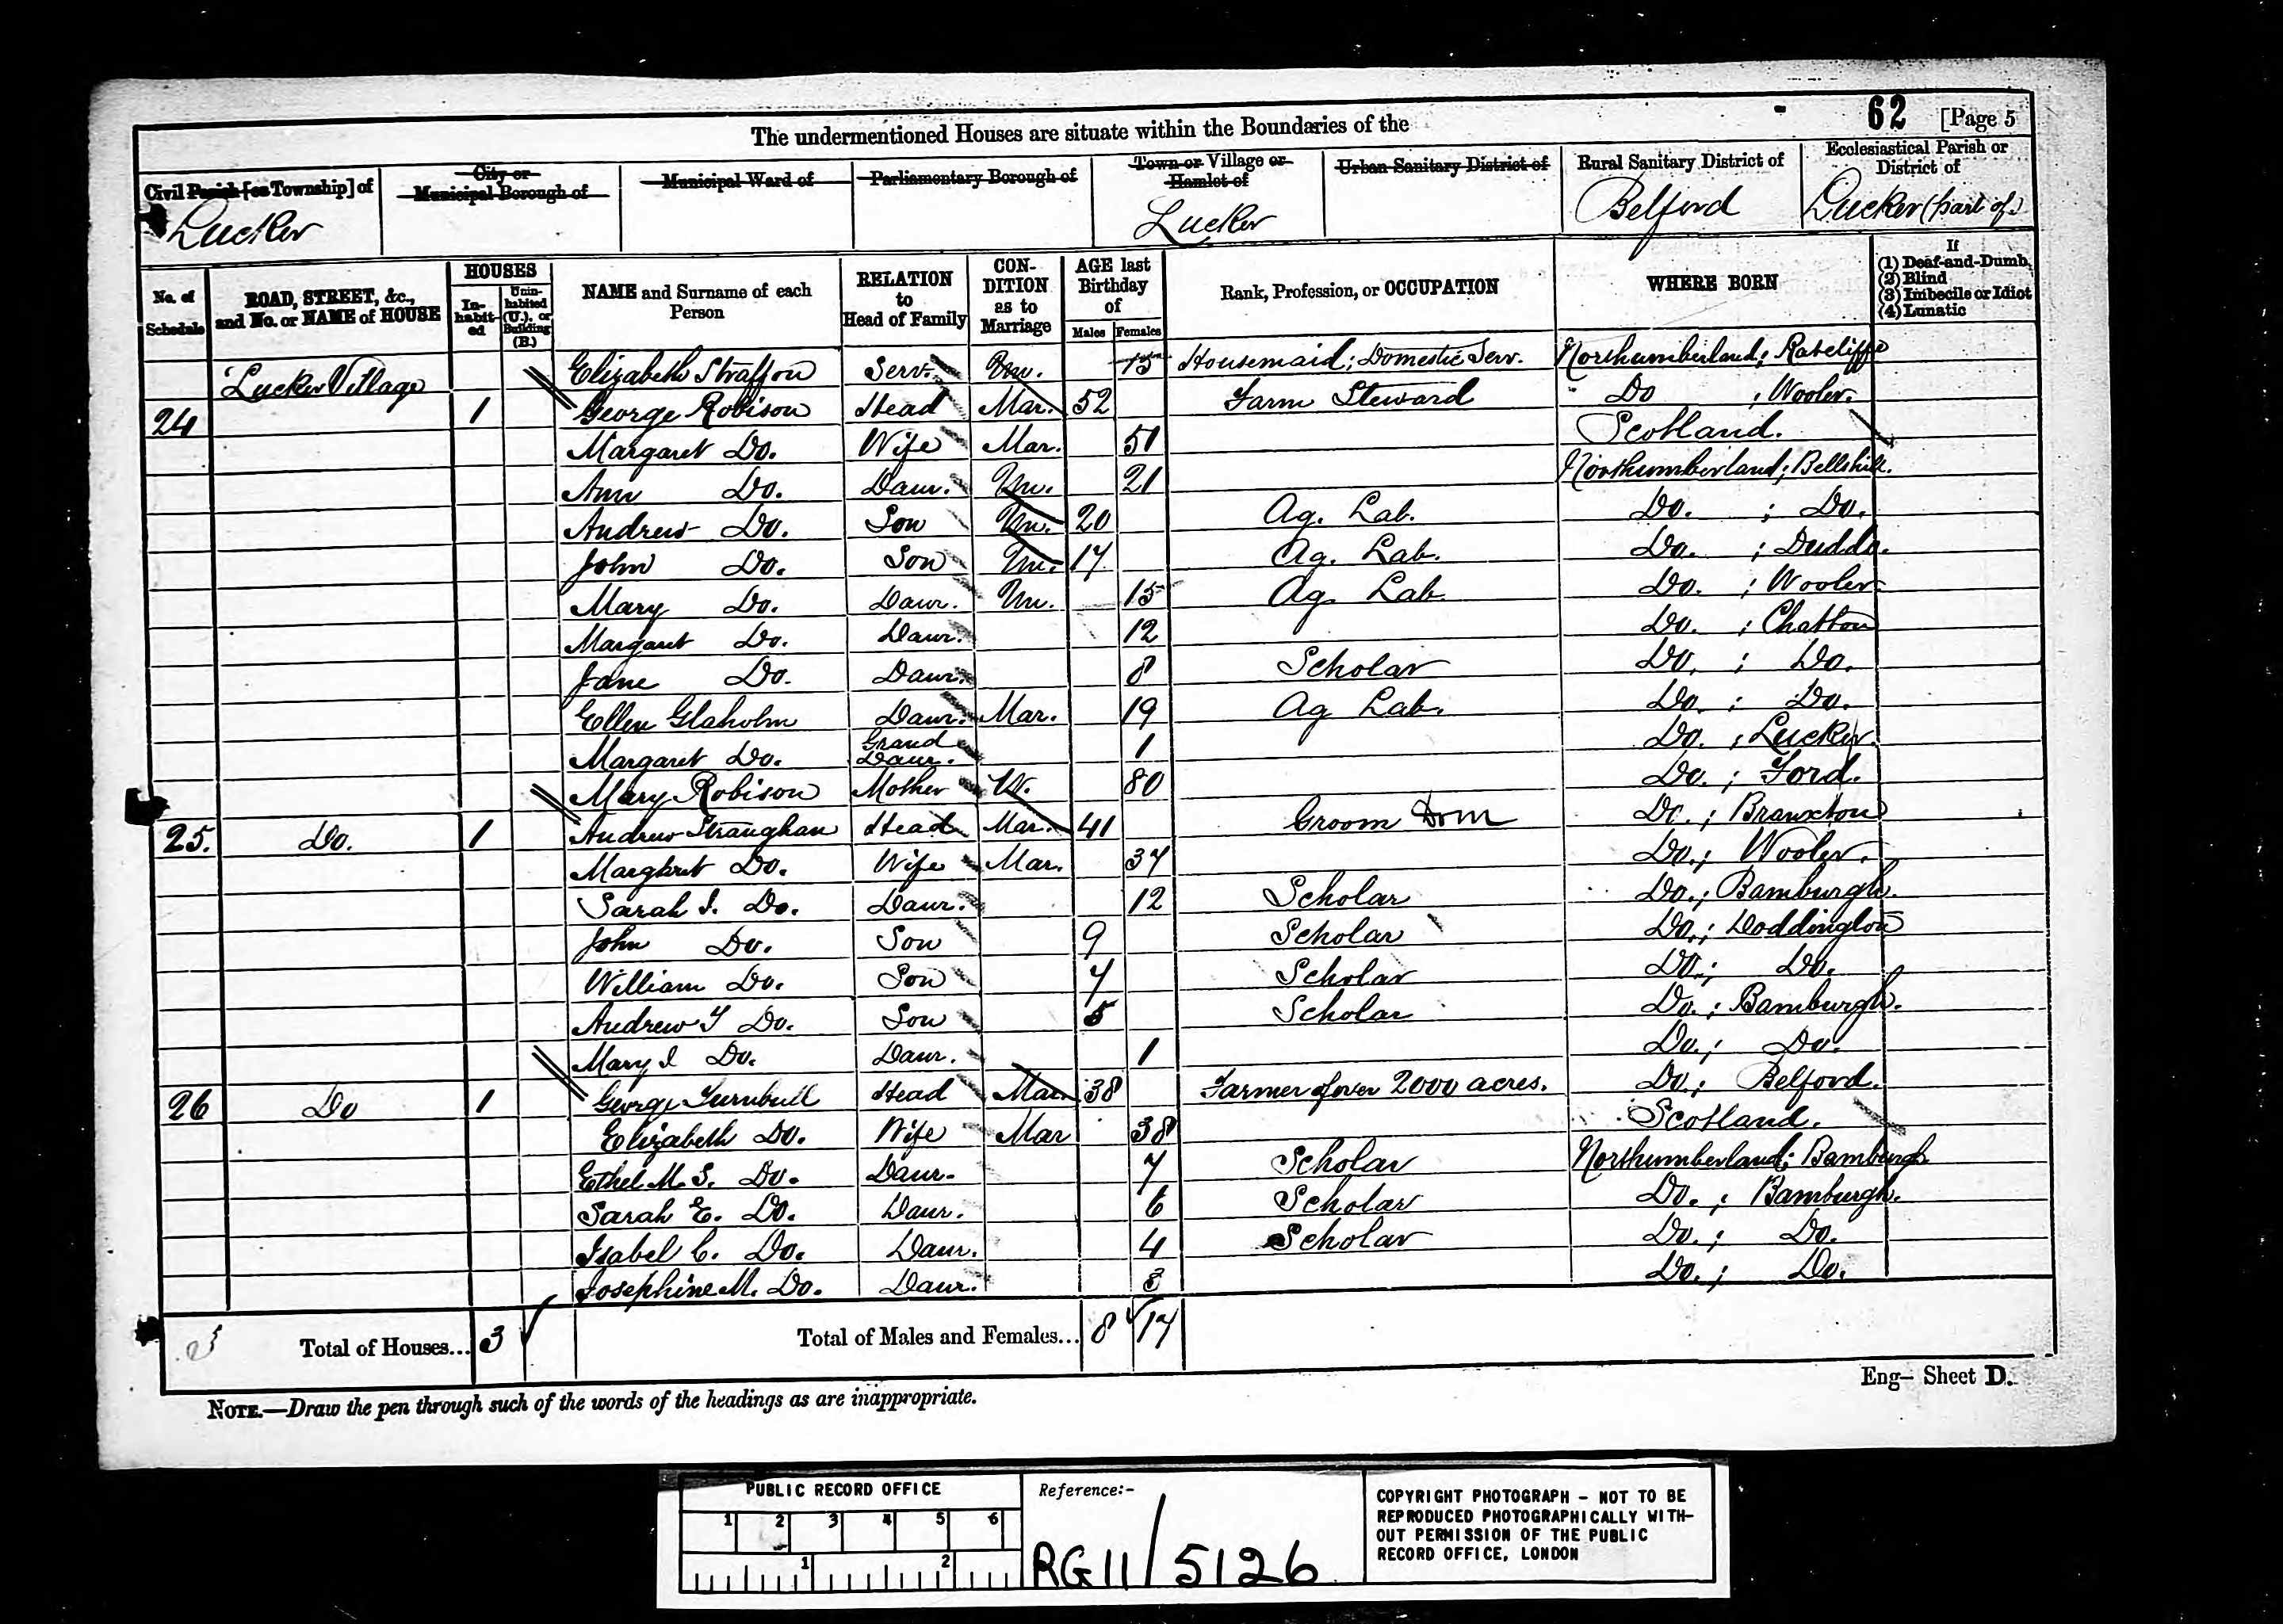 The undermentioned Houses are situate within the Boundaries of the
62 [Page 5
Civil Parish [or Township] of
Lucker
City or Municipal Borough of
Municipal Ward of
Parliamentary Borough of
Town or Village or Hamlet of
Lucker
Urban Sanitary District of
Rural Sanitary District of
Belford
Ecclesiastical Parish or District of
Lucker (part of)
No. of Schedule
ROAD, STREET, &c., and No. or NAME of HOUSE
HOUSES
In-habit-ed
Unin-habited (U.), or Building (B.)
NAME and Surname of each Person
RELATION to Head of Family
CON-DITION as to Marriage
AGE last Birthday of
Males Females
Rank, Profession, or OCCUPATION
WHERE BORN
If
(1) Deaf-and-Dumb
(2) Blind
(3) Imbecile or Idiot
(4) Lunatic
Lucker Village Elizabeth Straffon Serv. Un. 15 Housemaid; Domestic Serv. Northumberland; Ratcliffe
24 1 George Robison Head Mar. 52 Farm Steward Do ; Wooler.
Margaret Do. Wife Mar. 51 Scotland.
Ann Do. Daur. Un. 21 Northumberland; Bellshill.
Andrew Do. Son Un. 20 Ag. Lab. Do. ; Do.
John Do. Son Un. 17 Ag. Lab. Do. ; Duddo.
Mary Do. Daur. Un. 15 Ag. Lab. Do. ; Wooler
Margaret Do. Daur. 12 Do. ; Chatton
Jane Do. Daur. 8 Scholar Do. ; Do.
Ellen Glaholm Daur. Mar. 19 Ag Lab. Do. ; Do.
Margaret Do. Grand Daur. 1 Do. ; Lucker.
Mary Robison Mother W. 80 Do. ; Ford.
25. Do. 1 Andrew Straughan Head Mar. 41 Groom Dom Do. ; Branxton
Marghret Do. Wife Mar. 37 Do. ; Wooler.
Sarah I. Do. Daur. 12 Scholar Do. ; Bamburgh.
John Do. Son 9 Scholar Do. ; Doddington
William Do. Son 7 Scholar Do. ; Do.
Andrew T Do. Son 5 Scholar Do. ; Bamburgh.
Mary I Do. Daur. 1 Do. ; Do.
26 Do 1 George Turnbull Head Mar. 38 Farmer of over 2000 acres. Do. ; Belford.
Elizabeth Do. Wife Mar 38 Scotland.
Ethel M. S. Do. Daur. 7 Scholar Northumberland; Bamburgh
Sarah E. Do. Daur. 6 Scholar Do. ; Bamburgh.
Isabel C. Do. Daur. 4 Scholar Do. ; Do.
Josephine M. Do. Daur. 3 Do. ; Do.
Total of Houses... 3 Total of Males and Females... 8 17
Eng— Sheet D.
NOTE.—Draw the pen through such of the words of the headings as are inappropriate.
PUBLIC RECORD OFFICE
1 2 3 4 5 6
1 2
Reference:-
RG 11 / 5126
COPYRIGHT PHOTOGRAPH - NOT TO BE
REPRODUCED PHOTOGRAPHICALLY WITH-
OUT PERMISSION OF THE PUBLIC
RECORD OFFICE, LONDON